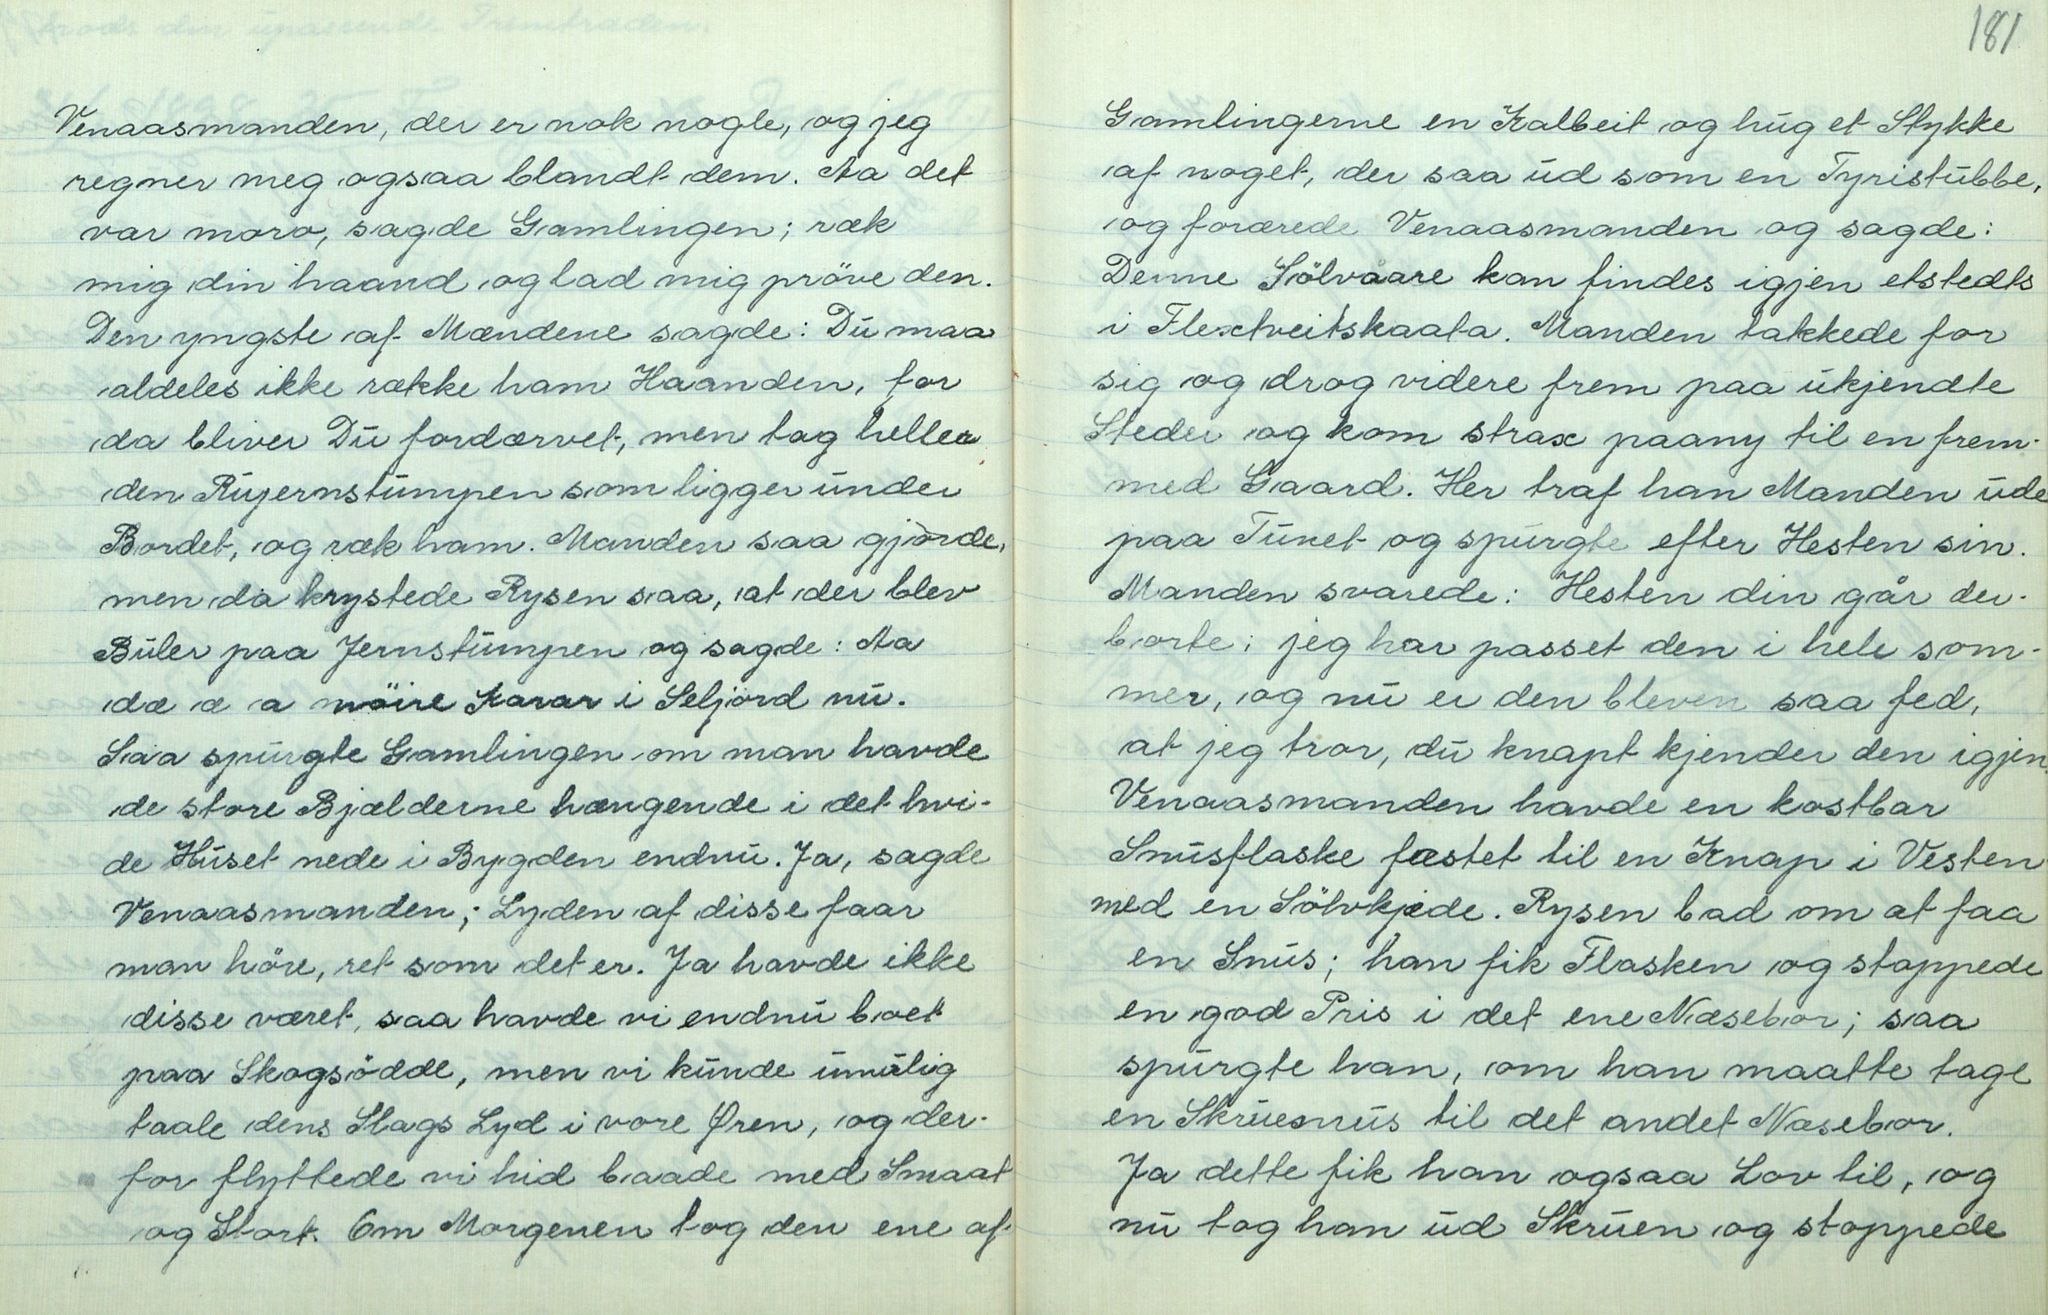 Venaasmanden, der er nok nogle, og jeg
regner meg ogsaa blandt dem. Aa det
var moro, sagde Gamlingen; ræk
mig din haand og lad mig pröve den.
Den yngste af Mændene sagde: Du maa
aldeles ikke række ham Haanden, for
da bliver Du fordærvet, men tag heller
den Rujernstumpen som ligger under
Bordet, og ræk ham. Manden saa gjorde,
men da krystede Rysen saa, at der blev
Buler paa Jernstumpen og sagde: Aa
dæ æ a möire Karar i Seljord nu.
Saa spurgte Gamlingen om man havde
de store Bjælderne hængende i det hvi-
de Huset nede i Bygden endnu. Ja, sagde
Venaasmanden; Lyden af disse faar
man höre, ret som det er. Ja havde ikke
disse været, saa havde vi endnu boet
paa Skogsödde, men vi kunde umulig
taale dens Slags Lyd i vore Øren, og der-
for flyttede vi hid baade med Smaat
og Stort. Om Morgenen tog den ene af
181
Gamlingerne en Kalbeit og hug et Stykke
af noget, der saa ud som en Tyristubbe,
og forærede Venaasmanden og sagde:
Denne Sölvaare kan findes igjen etstedts
i Flextveitskaata. Manden takkede for
sig og drog videre frem paa ukjendte
Steder og kom strax paany til en frem-
med Gaard. Her traf han Manden ude
paa Tunet og spurgte efter Hesten sin.
Manden svarede: Hesten din går der-
borte; jeg har passet den i hele som-
mer, og nu er den bleven saa fed,
at jeg tror, du knapt kjender den igjen.
Venaasmanden havde en kostbar
Snusflaske fæstet til en Knap i Vesten
med en Sölvkjede. Rysen bad om at faa
en Snus; han fik Flasken og stoppede
en god Pris i det ene Næsebor; saa
spurgte han, om han maatte tage
en Skruesnus til det andet Næsebor.
Ja dette fik han ogsaa Lov til, og
nu tog han ud Skruen og stoppede